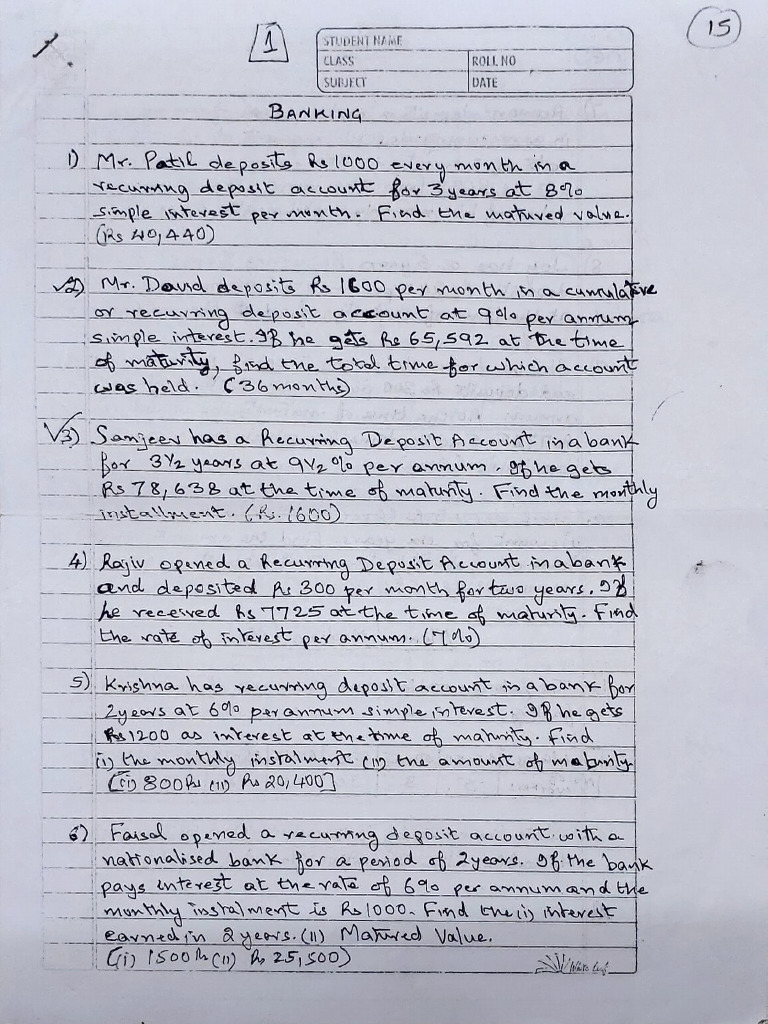 15
1
STUDENT NAME
CLASS
ROLL NO
SUBJECT
DATE
BANKING
1) Mr. Patil deposits Rs 1000 every month in a
recurring deposit account for 3 years at 8%
simple interest per month. Find the matured value.
(Rs 40,440)
2) Mr. David deposits Rs 1600 per month in a cumulative
or recurring deposit account at 9% per annum
simple interest. If he gets Rs 65,592 at the time
of maturity, find the total time for which account
was held. (36 months)
3) Sanjeev has a Recurring Deposit Account in a bank
for 3½ years at 9½% per annum. If he gets
Rs 78,638 at the time of maturity. Find the monthly
installment. (Rs. 1600)
4) Rajiv opened a Recurring Deposit Account in a bank
and deposited Rs 300 per month for two years. If
he received Rs 7725 at the time of maturity. Find
the rate of interest per annum. (7%)
5) Krishna has recurring deposit account in a bank for
2 years at 6% per annum simple interest. If he gets
Rs 1200 as interest at the time of maturity. Find
(i) the monthly instalment (ii) the amount of maturity.
[(i) 800 Rs (ii) Rs 20,400]
6) Faisal opened a recurring deposit account with a
nationalised bank for a period of 2 years. If the bank
pays interest at the rate of 6% per annum and the
monthly instalment is Rs 1000. Find the (i) interest
earned in 2 years. (ii) Matured Value.
((i) 1500 Rs (ii) Rs 25,500)
White Leaf